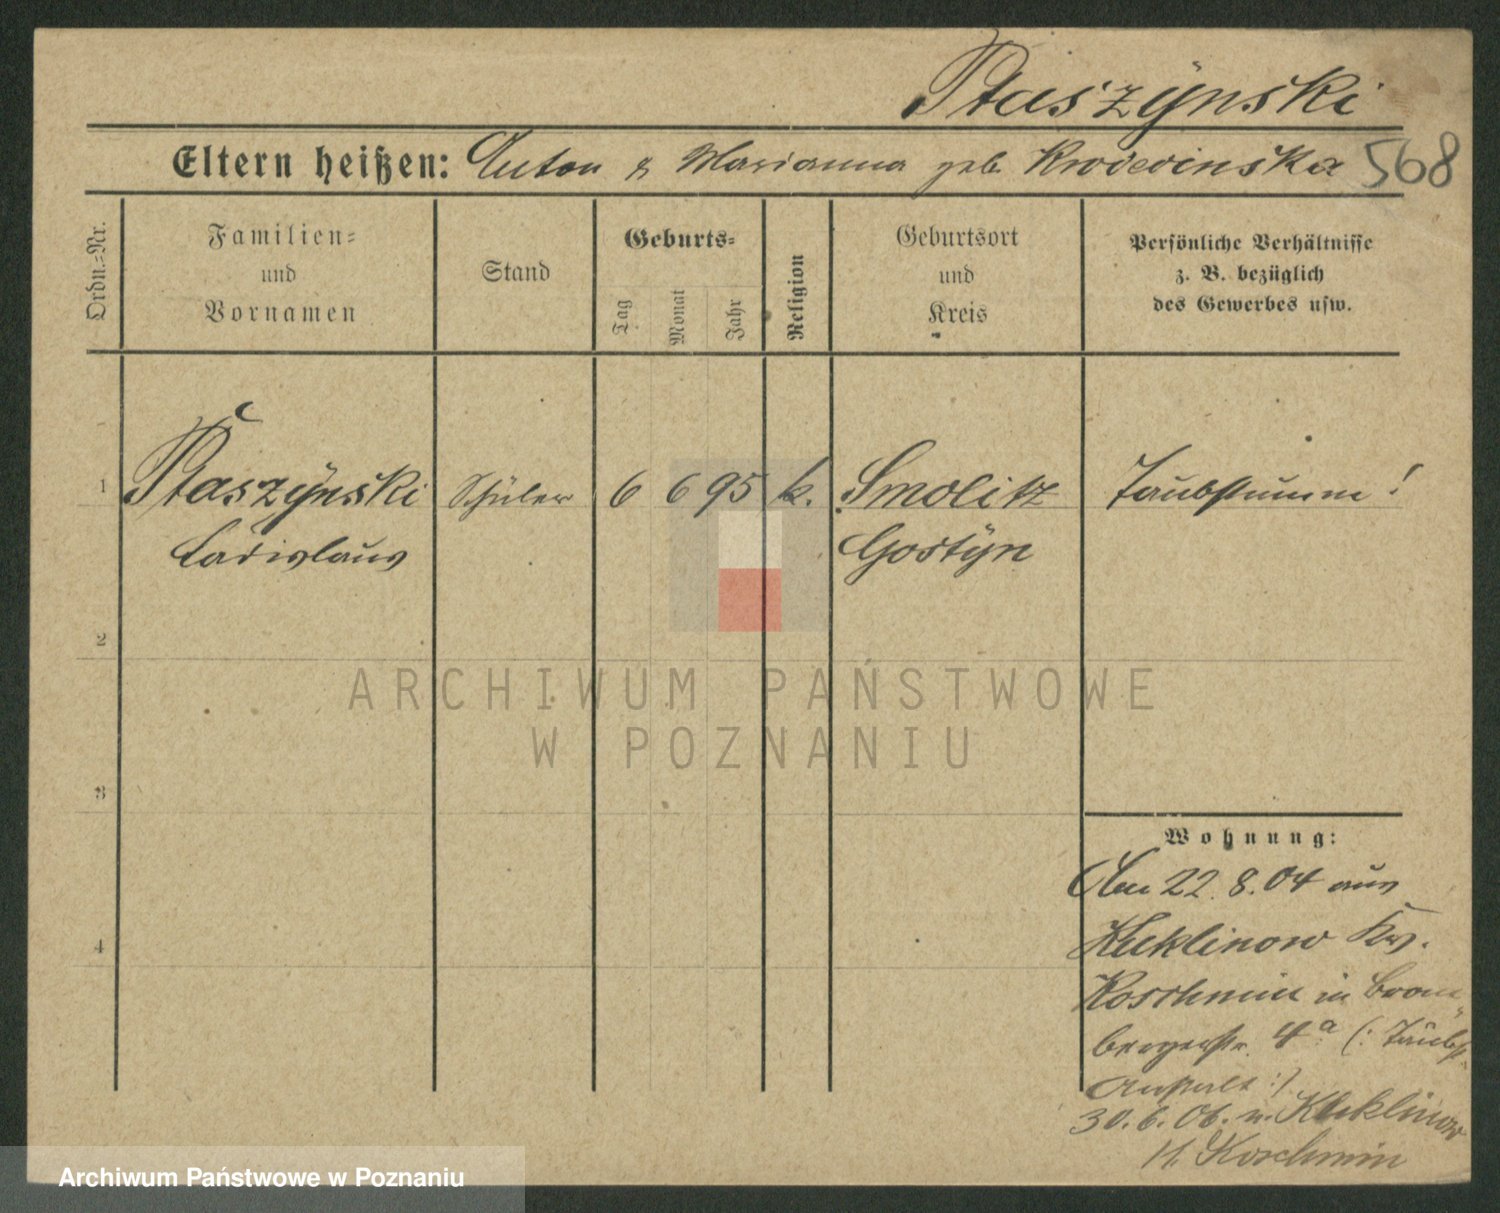 Ptaszynski
Eltern heißen: Anton & Marianna geb.
568
Ordn.-Nr.
Familien-
und
Vornamen
Stand
Geburts-
Tag
Monat
Jahr
Religion
Geburtsort
und
Kreis
Persönliche Verhältnisse
z. B. bezüglich
des Gewerbes usw.
1 Ptaszynski Schüler 6 6 95 k. Smolitz Taubstumm!
Ladislaus Gostyn
2
3
4
ARCHIWUM PAŃSTWOWE
W POZNANIU
Wohnung:
Am 22.8.04 aus
Kuklinow Krs.
Koschmin in Brom-
bergerstr. 4a (: Taubst.
Anstalt :)
30.6.06. n. Kuklinow
Koschmin
Archiwum Państwowe w Poznaniu